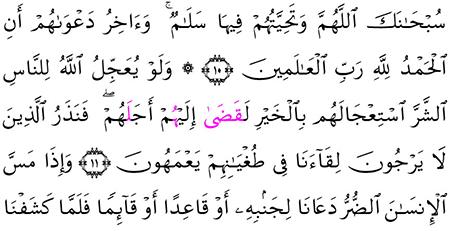 سُبْحَـٰنَكَ ٱللَّهُمَّ وَتَحِيَّتُهُمْ فِيهَا سَلَـٰمٌ ۚ وَءَاخِرُ دَعْوَىٰهُمْ أَنِ
ٱلْحَمْدُ لِلَّهِ رَبِّ ٱلْعَـٰلَمِينَ ﴿١٠﴾ ۞ وَلَوْ يُعَجِّلُ ٱللَّهُ لِلنَّاسِ
ٱلشَّرَّ ٱسْتِعْجَالَهُم بِٱلْخَيْرِ لَقَضَىٰ إِلَيْهُمْ أَجَلَهُمْ ۖ فَنَذَرُ ٱلَّذِينَ
لَا يَرْجُونَ لِقَآءَنَا فِى طُغْيَـٰنِهِمْ يَعْمَهُونَ ﴿١١﴾ وَإِذَا مَسَّ
ٱلْإِنسَـٰنَ ٱلضُّرُّ دَعَانَا لِجَنۢبِهِۦ أَوْ قَاعِدًا أَوْ قَآئِمًا فَلَمَّا كَشَفْنَا